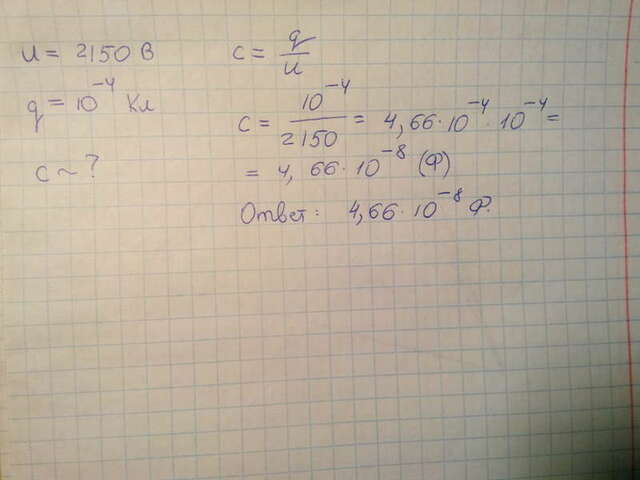 u = 2150 В
q = 10⁻⁴ Кл
c ~ ?
c = q/u
c = 10⁻⁴/2150 = 4,66·10⁻⁴·10⁻⁴ =
= 4,66·10⁻⁸ (Ф)
Ответ: 4,66·10⁻⁸ Ф.